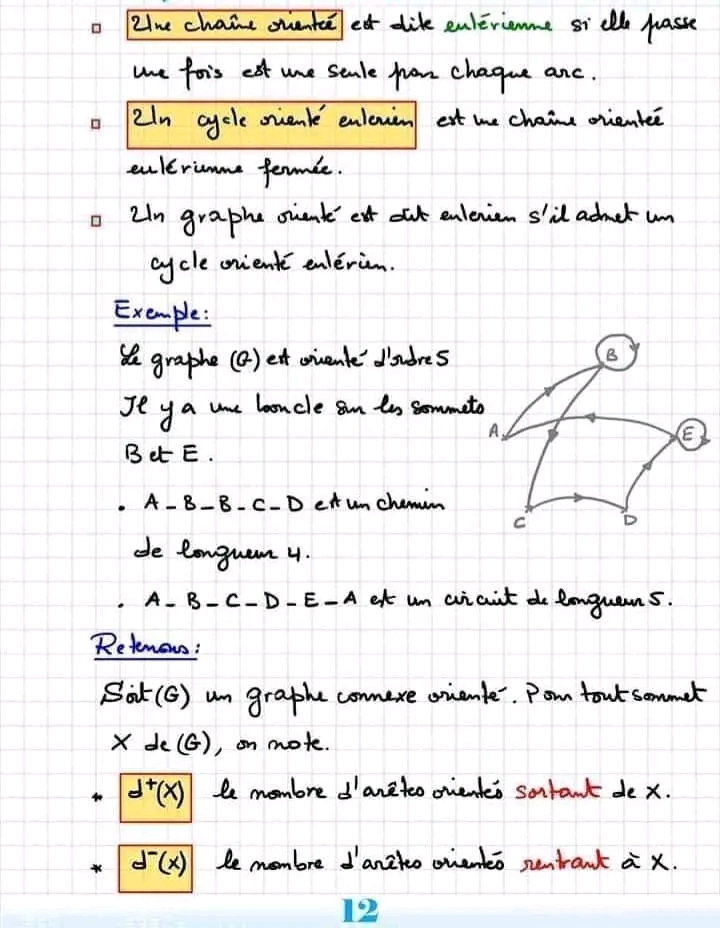 Une chaîne orienté est dite eulérienne si elle passe
une fois est une seule par chaque arc.
Un cycle orienté eulerien est une chaîne orienteé
eulérienne fermée.
Un graphe orienté est dit eulerien s'il admet un
cycle orienté eulérien.
Exemple:
Le graphe (G) est orienté d'ordre 5
Il y a une boucle sur les sommets
B et E.
. A-B-B-C-D est un chemin
de longueur 4.
. A-B-C-D-E-A est un circuit de longueur 5.
B
A
E
C
D
Retenons:
Soit (G) un graphe connexe orienté. Pour tout sommet
X de (G), on note.
* d⁺(X) le nombre d'arêtes orientés sortant de X.
* d⁻(X) le nombre d'arêtes orientés rentrant à X.
12